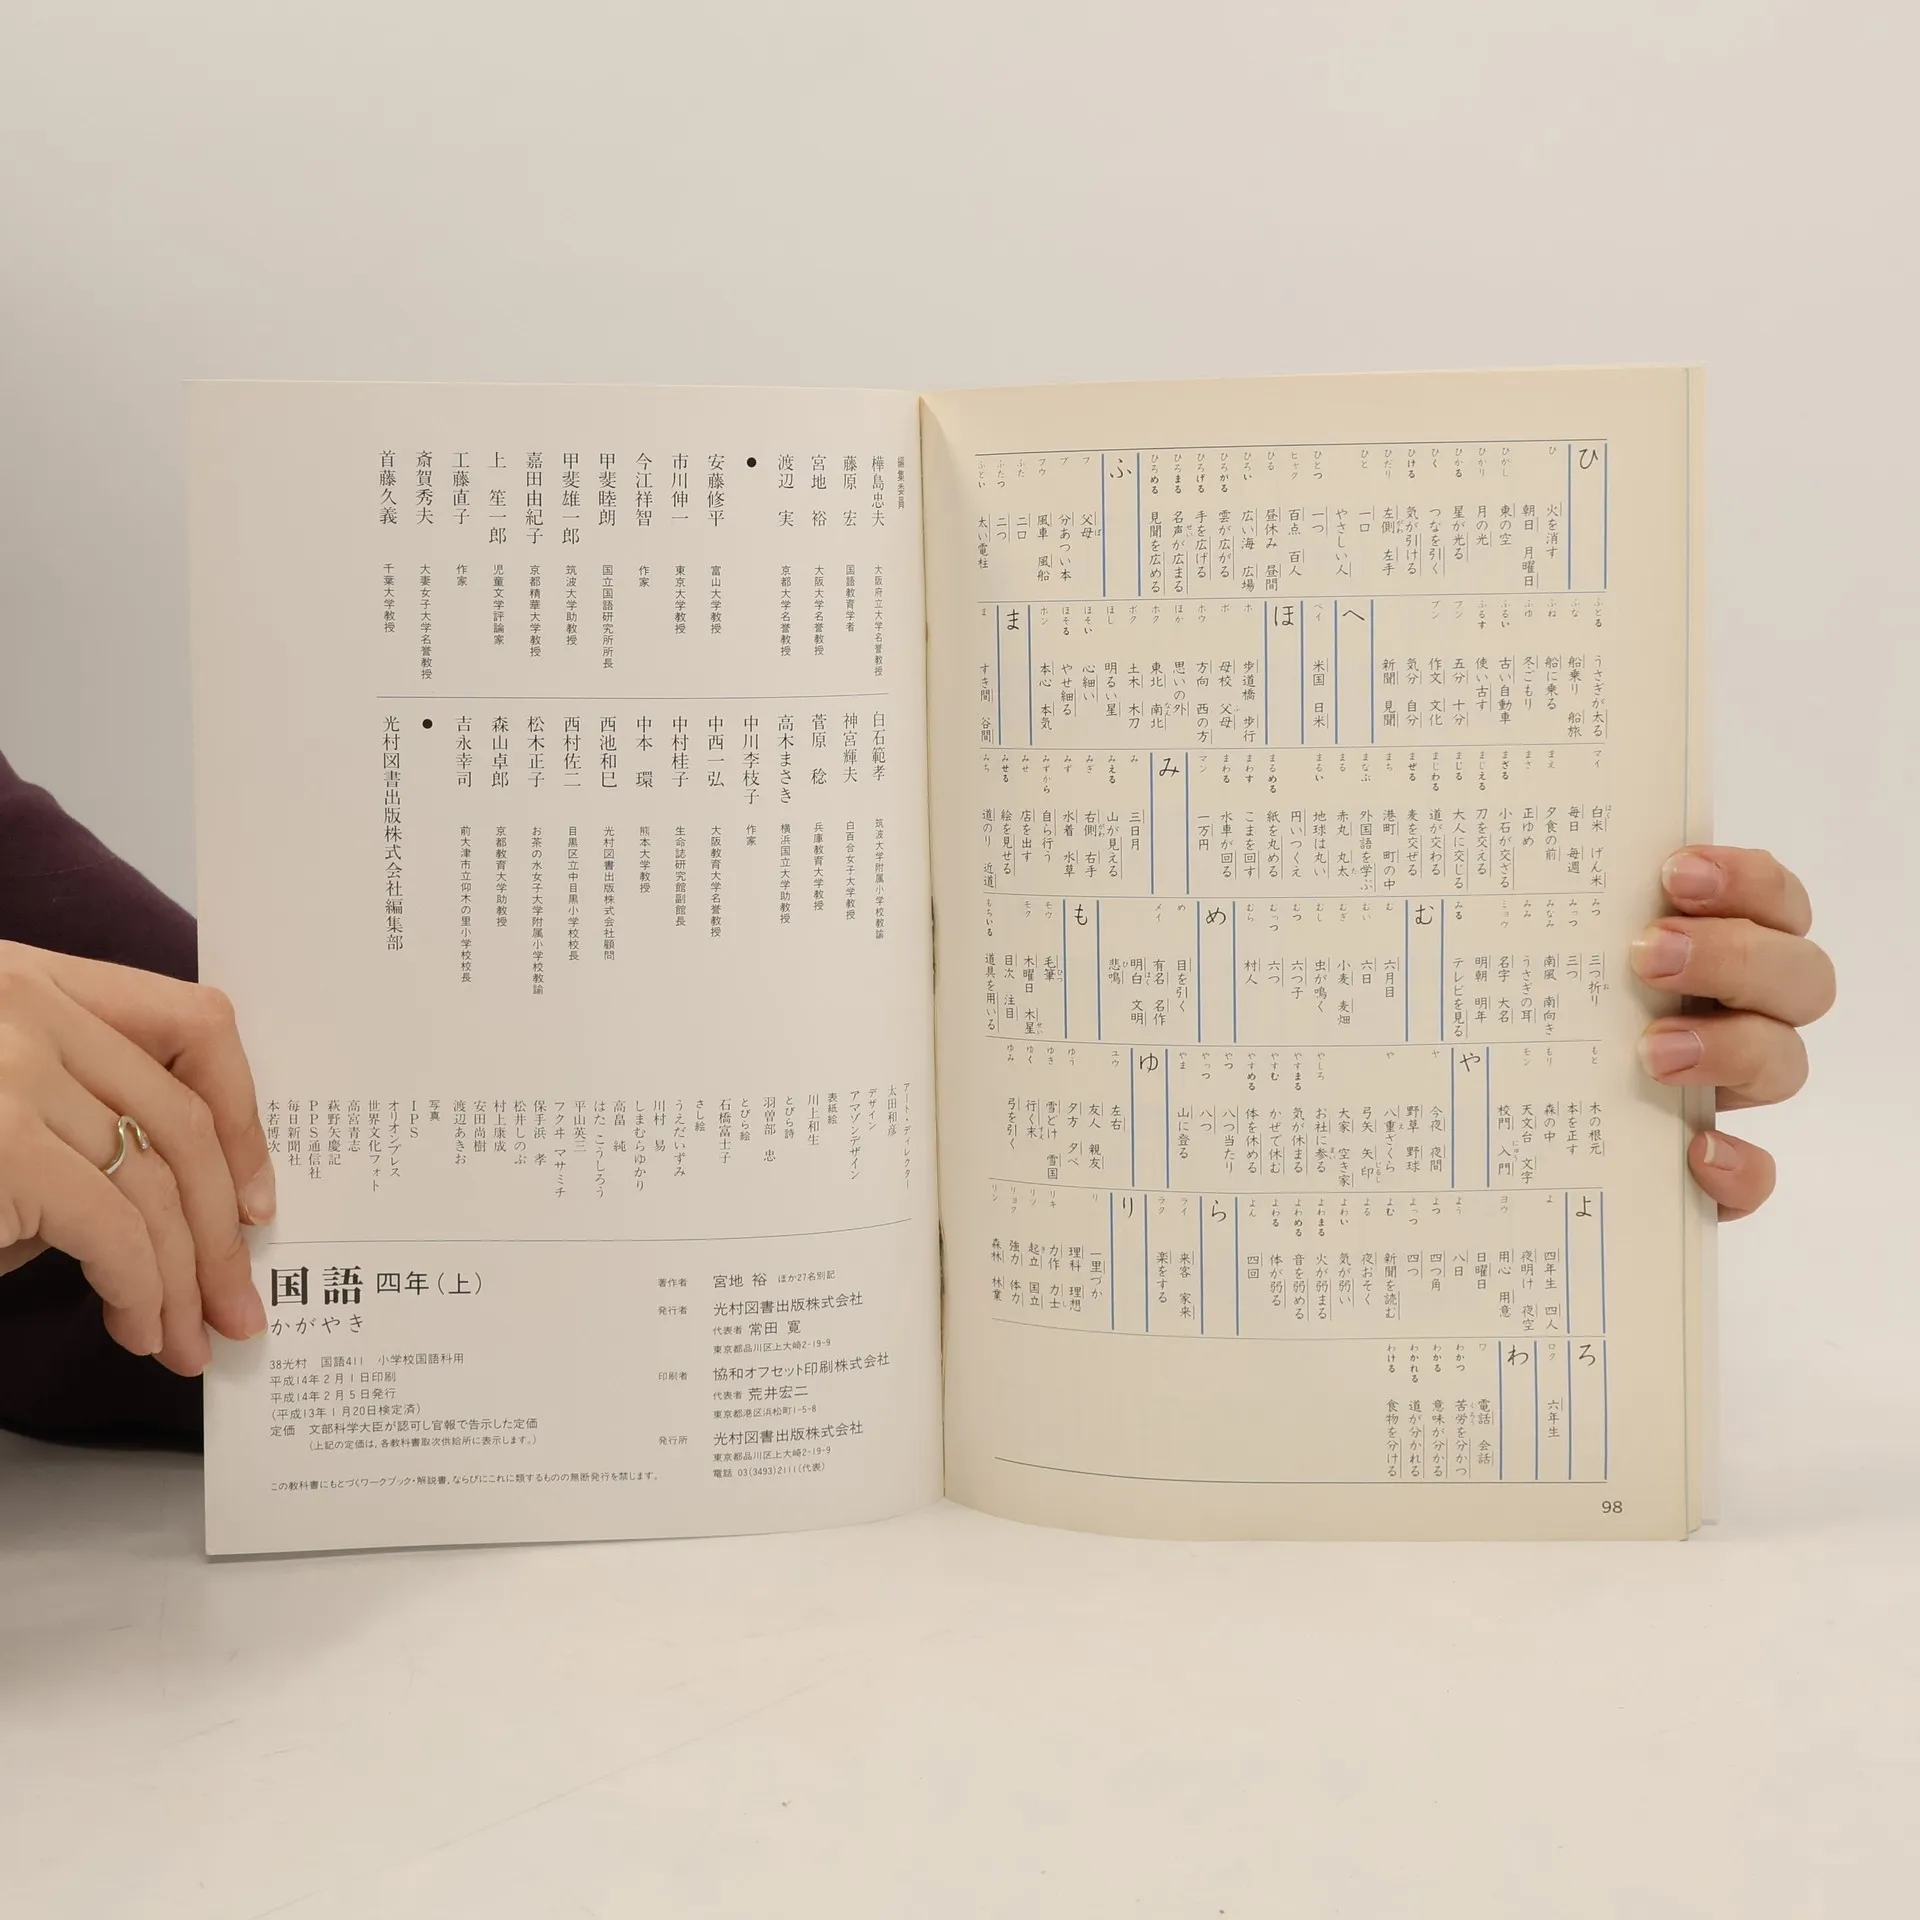 ひ
ひ 火を消す
朝日 月曜日
ひがし 東の空
ひかり 月の光
ひかる 星が光る
ひく つなを引く
ひける 気が引ける
ひだり 左側 左手
ひと 一口
やさしい人
ひとつ 一つ
ヒャク 百点 百人
ひる 昼休み 昼間
ひろい 広い海 広場
ひろがる 雲が広がる
ひろげる 手を広げる
ひろまる 名声が広まる
ひろめる 見聞を広める
ふ
フ 父母
ブ 分あつい本
フウ 風車 風船
ふた 二口
ふたつ 二つ
ふとい 太い電柱
ふとる うさぎが太る
ふな 船乗り 船旅
ふね 船に乗る
ふゆ 冬ごもり
ふるい 古い自動車
ふるす 使い古す
フン 五分 十分
ブン 作文 文化
気分 自分
新聞 見聞
へ
ベイ 米国 日米
ほ
ホ 歩道橋 歩行
ボ 母校 父母
ホウ 方向 西の方
ほか 思いの外
ホク 東北 南北
ボク 土木 木刀
ほし 明るい星
ほそい 心細い
ほそる やせ細る
ホン 本心 本気
ま
ま すき間 谷間
マイ 白米 げん米
毎日 毎週
まえ 夕食の前
まさ 正ゆめ
まざる 小石が交ざる
まじえる 刀を交える
まじる 大人に交じる
まじわる 道が交わる
まぜる 麦を交ぜる
まち 港町 町の中
まなぶ 外国語を学ぶ
まる 赤丸 丸太
まるい 地球は丸い
円いつくえ
まるめる 紙を丸める
まわす こまを回す
まわる 水車が回る
マン 一万円
み
み 三日月
みえる 山が見える
みぎ 右側 右手
みず 水着 水草
みずから 自ら行う
みせ 店を出す
みせる 絵を見せる
みち 道のり 近道
みつ 三つ折り
みっつ 三つ
みなみ 南風 南向き
みみ うさぎの耳
ミョウ 名字 大名
明朝 明年
みる テレビを見る
む
む 六月目
むい 六日
むぎ 小麦 麦畑
むし 虫が鳴く
むつ 六つ子
むっつ 六つ
むら 村人
め
め 目を引く
メイ 有名 名作
明白 文明
悲鳴
も
モウ 毛筆
モク 木曜日 木星
目次 注目
もちいる 道具を用いる
もと 木の根元
本を正す
もり 森の中
モン 天文台 文字
校門 入門
や
ヤ 今夜 夜間
野草 野球
や 八重ざくら
弓矢 矢印
大家 空き家
やしろ お社に参る
やすまる 気が休まる
やすむ かぜで休む
やすめる 体を休める
やつ 八つ当たり
やっつ 八つ
やま 山に登る
ゆ
ユウ 左右
友人 親友
ゆう 夕方 夕べ
ゆき 雪どけ 雪国
ゆく 行く末
ゆみ 弓を引く
よ
よ 四年生 四人
夜明け 夜空
ヨウ 用心 用意
日曜日
よう 八日
よつ 四つ角
よっつ 四つ
よむ 新聞を読む
よる 夜おそく
よわい 気が弱い
よわまる 火が弱まる
よわめる 音を弱める
よわる 体が弱る
よん 四回
ら
ライ 来客 家来
ラク 楽をする
り
リ 一里づか
理科 理想
リキ 力作 力士
リツ 起立 国立
リョク 強力 体力
リン 森林 林業
ろ
ロク 六年生
わ
ワ 電話 会話
わかつ 苦労を分かつ
わかる 意味が分かる
わかれる 道が分かれる
わける 食物を分ける
98
編集委員
樺島忠夫 大阪府立大学名誉教授
藤原 宏 国語教育学者
宮地 裕 大阪大学名誉教授
渡辺 実 京都大学名誉教授
●
安藤修平 富山大学教授
市川伸一 東京大学教授
今江祥智 作家
甲斐睦朗 国立国語研究所所長
甲斐雄一郎 筑波大学助教授
嘉田由紀子 京都精華大学教授
上 笙一郎 児童文学評論家
工藤直子 作家
斎賀秀夫 大妻女子大学名誉教授
首藤久義 千葉大学教授
白石範孝 筑波大学附属小学校教諭
神宮輝夫 白百合女子大学教授
菅原 稔 兵庫教育大学教授
高木まさき 横浜国立大学助教授
中川李枝子 作家
中西一弘 大阪教育大学名誉教授
中村桂子 生命誌研究館副館長
中本 環 熊本大学教授
西池和巳 光村図書出版株式会社顧問
西村佐二 目黒区立中目黒小学校校長
松木正子 お茶の水女子大学附属小学校教諭
森山卓郎 京都教育大学助教授
吉永幸司 前大津市立仰木の里小学校校長
●
光村図書出版株式会社編集部
アート・ディレクター
太田和彦
デザイン
アマゾンデザイン
表紙絵
川上和生
とびら詩
羽曽部 忠
とびら絵
石橋富士子
さし絵
うえだいずみ
川村 易
しまむらゆかり
高畠 純
はた こうしろう
平山英三
フクヰ マサミチ
保手浜 孝
松井しのぶ
村上康成
安田尚樹
渡辺あきお
写真
IPS
オリオンプレス
世界文化フォト
高宮青志
萩野矢慶記
PPS通信社
毎日新聞社
本若博次
国語 四年(上)
かがやき
38光村 国語411 小学校国語科用
平成14年2月1日印刷
平成14年2月5日発行
(平成13年1月20日検定済)
定価 文部科学大臣が認可し官報で告示した定価
(上記の定価は、各教科書取次供給所に表示します。)
著作者 宮地 裕 ほか27名別記
発行者 光村図書出版株式会社
代表者 常田 寛
東京都品川区上大崎2-19-9
印刷者 協和オフセット印刷株式会社
代表者 荒井宏二
東京都港区浜松町1-5-8
発行所 光村図書出版株式会社
東京都品川区上大崎2-19-9
電話 03(3493)2111(代表)
この教科書にもとづくワークブック・解説書、ならびにこれに類するものの無断発行を禁じます。